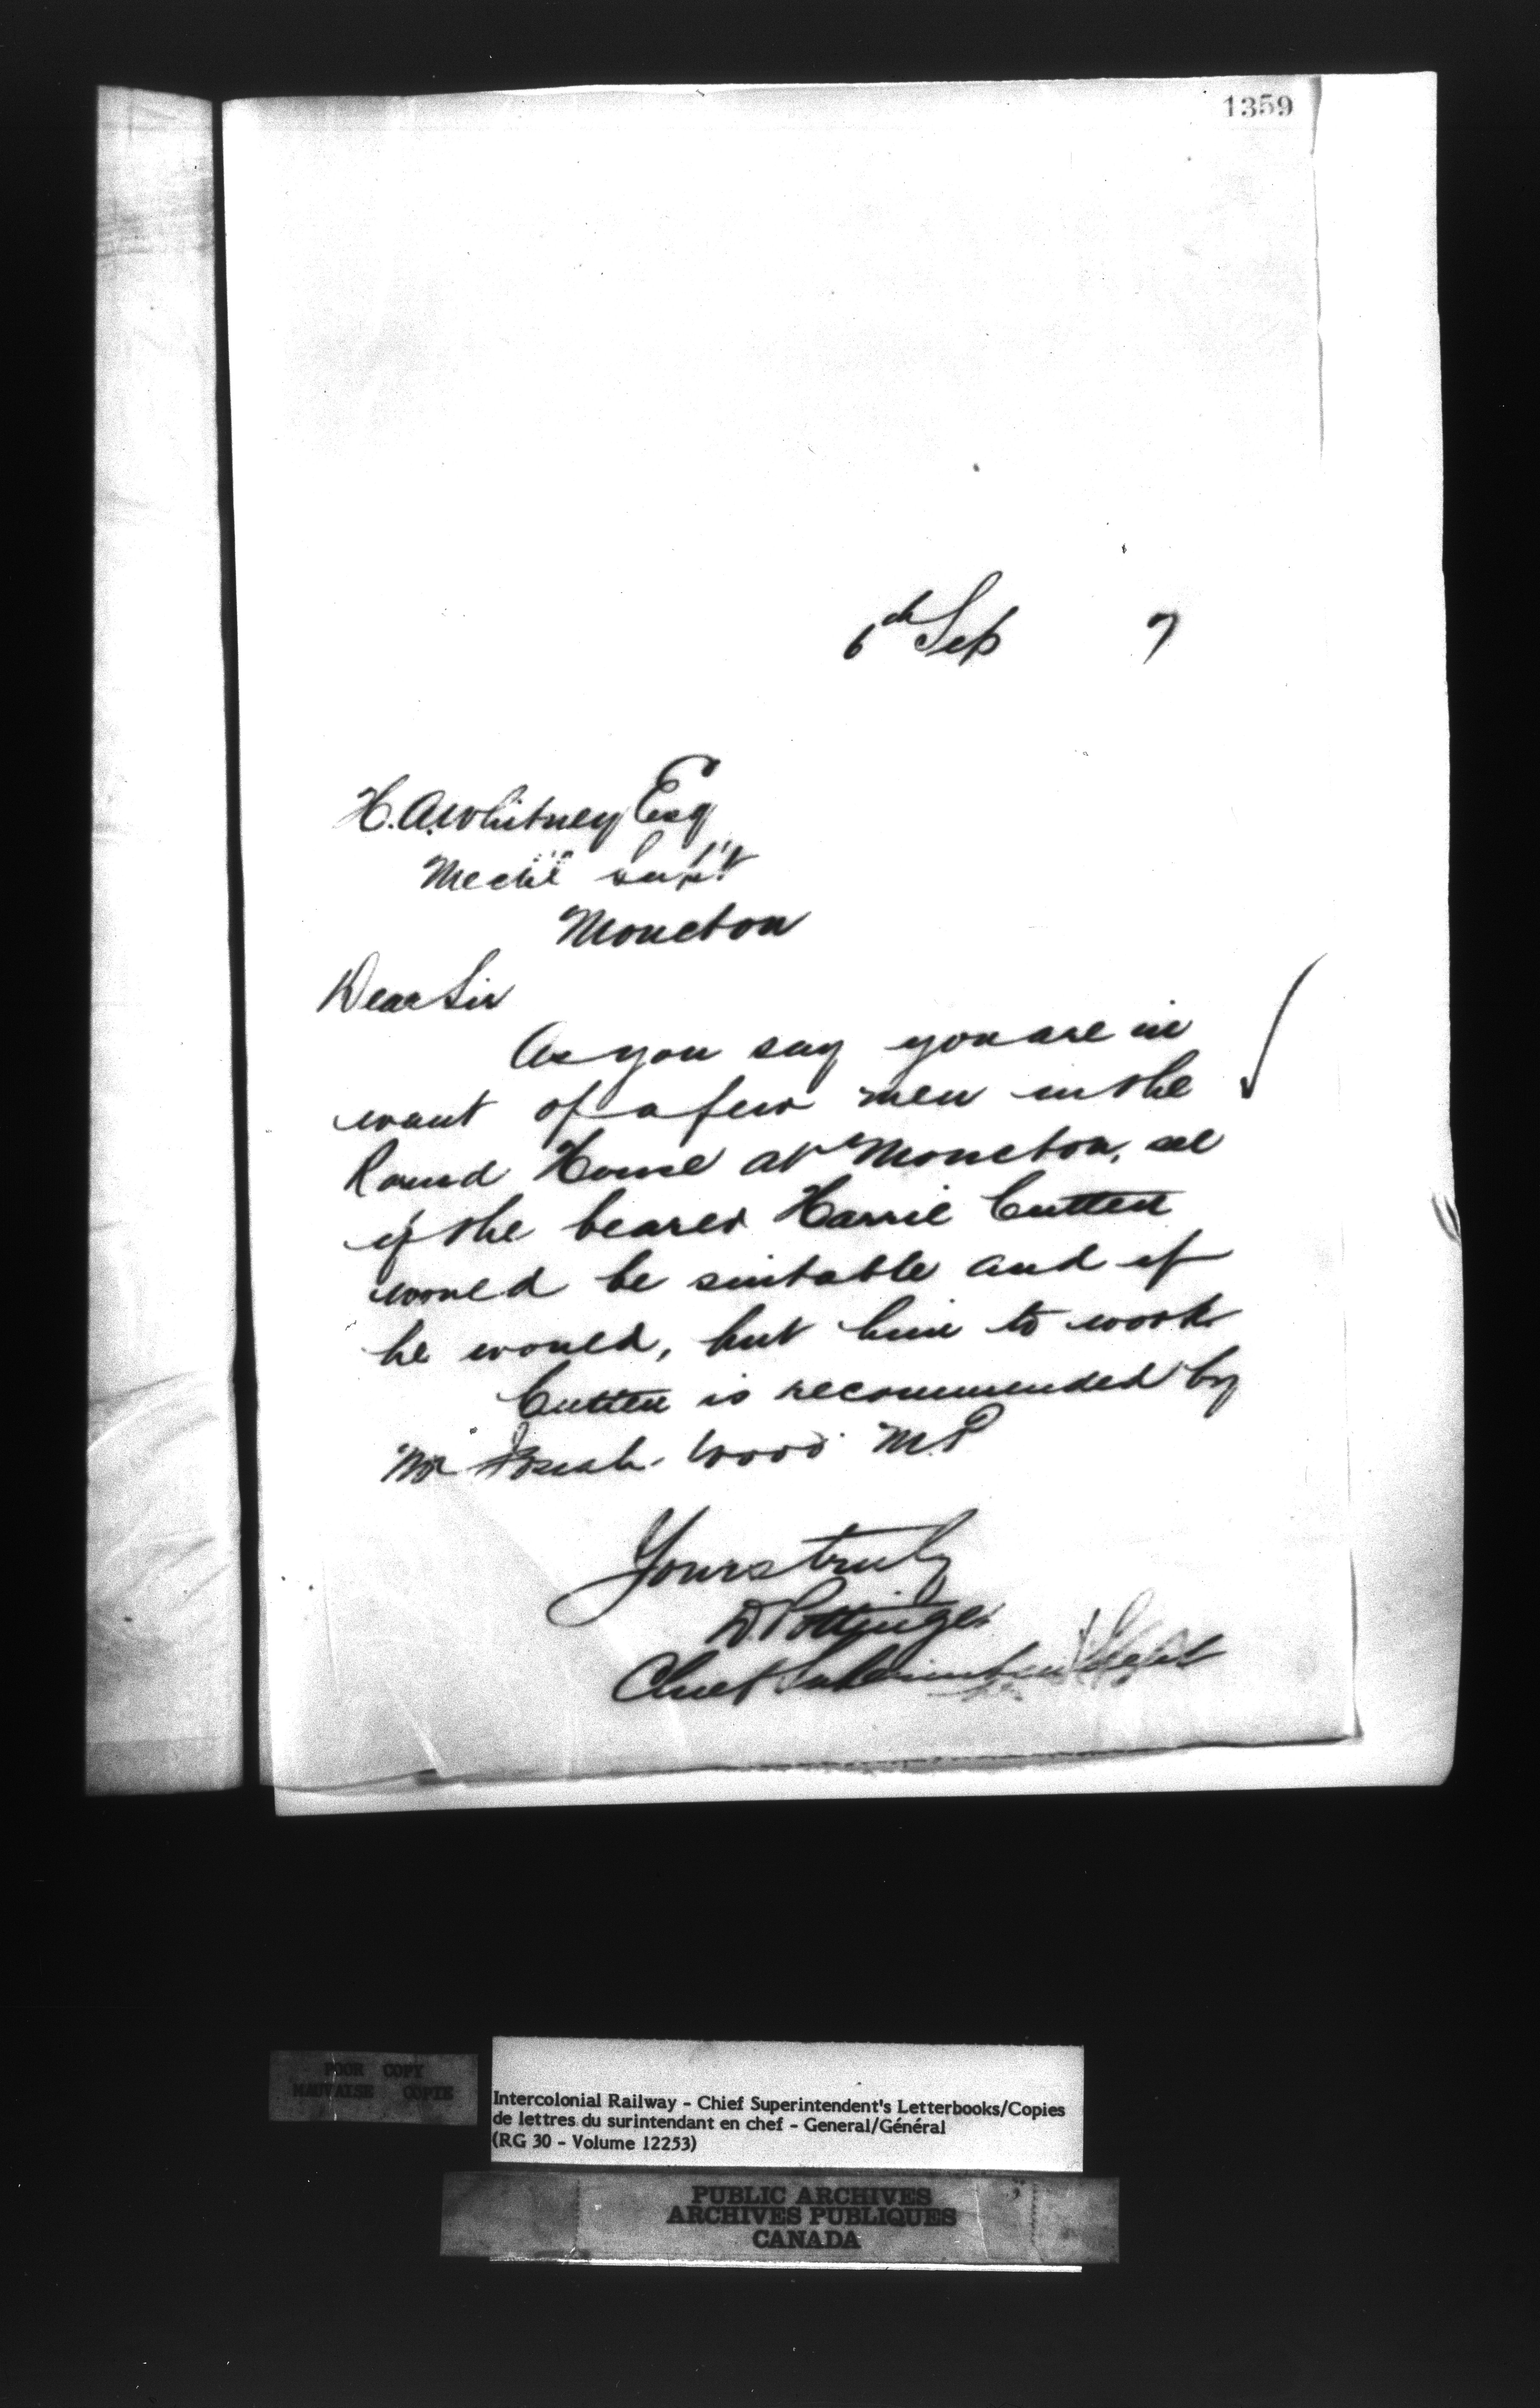 1359
6th Sep 7
H. A. Whitney Esq
Mech'l Sup't
Moncton
Dear Sir
As you say you are in
want of a few men in the
Round House at Moncton, see
if the bearer Harrie Cutten
would be suitable and if
he would, put him to work
Cutten is recommended by
Mr Josiah Wood M.P
Yours truly
D. Pottinger
Chief Superintendent
POOR COPY
MAUVAISE COPIE
Intercolonial Railway - Chief Superintendent's Letterbooks/Copies
de lettres du surintendant en chef - General/Général
(RG 30 - Volume 12253)
PUBLIC ARCHIVES
ARCHIVES PUBLIQUES
CANADA